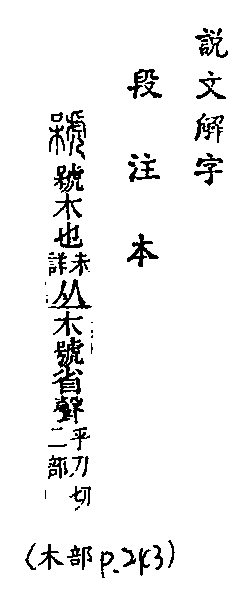 説文解字
段注本
號木也
未詳
从木號省聲
乎刀切
二部
(木部p.243)